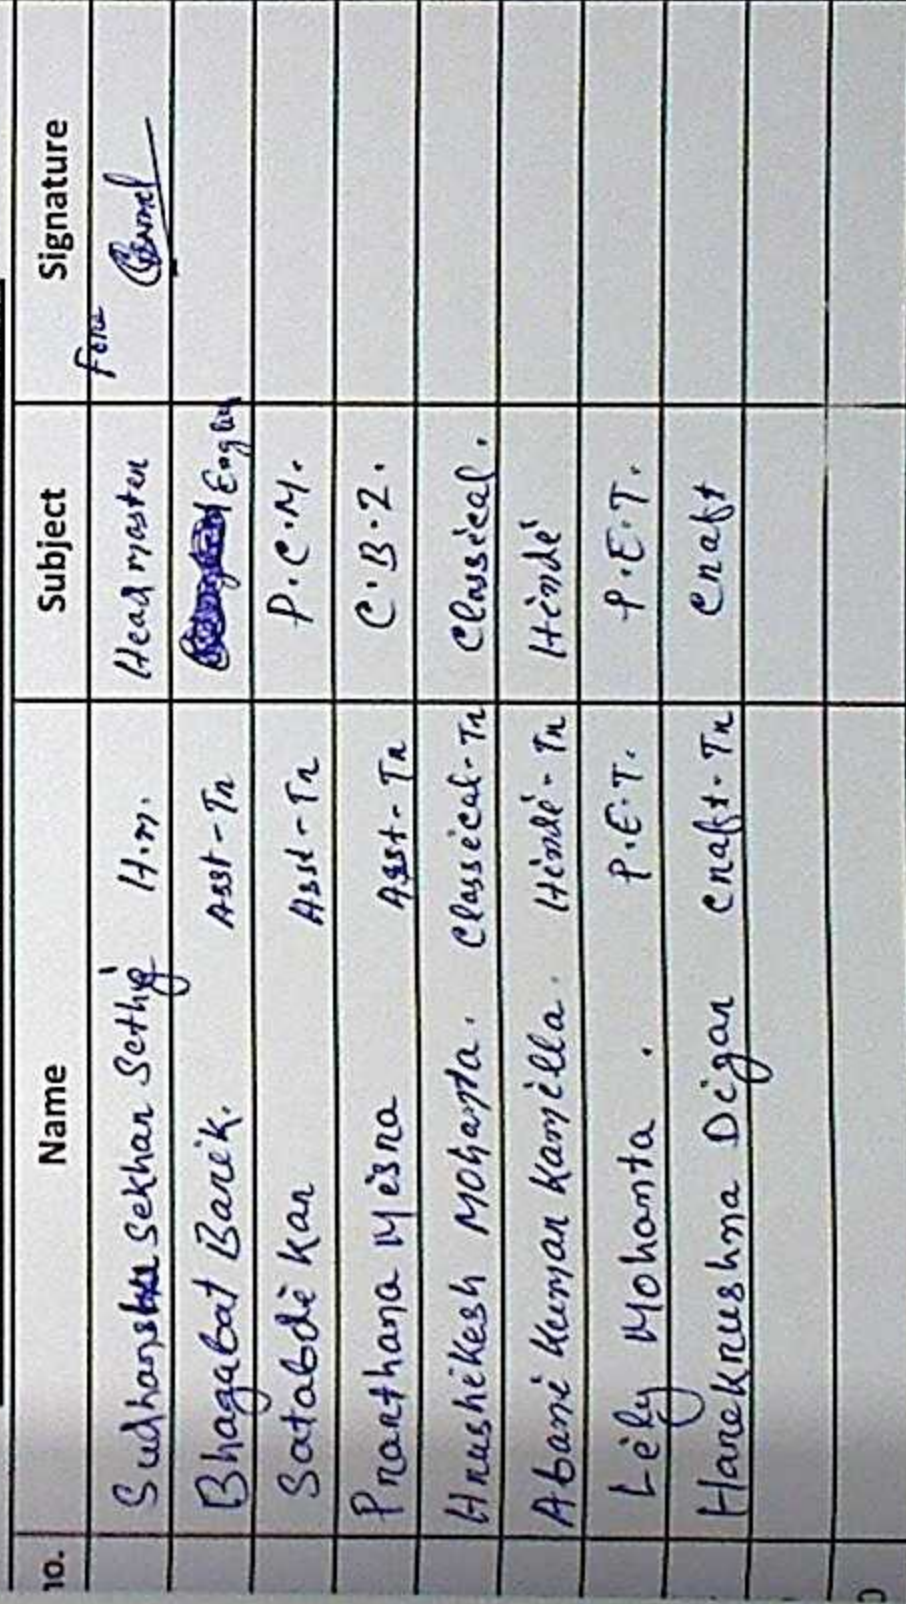 no. Name Subject Signature
Sudhansu Sekhar Sethy H.M. Headmaster For
Bhagabat Barik. Asst-Tr English
Satabdi Kar Asst-Tr P.C.M.
Prarthana Misra Asst-Tr C.B.Z.
Hrushikesh Mohanta. Classical-Tr Classical.
Abani Kumar Kamilla. Hindi-Tr Hindi
Lily Mohanta. P.E.T. P.E.T.
Harekrushna Digar Craft-Tr Craft